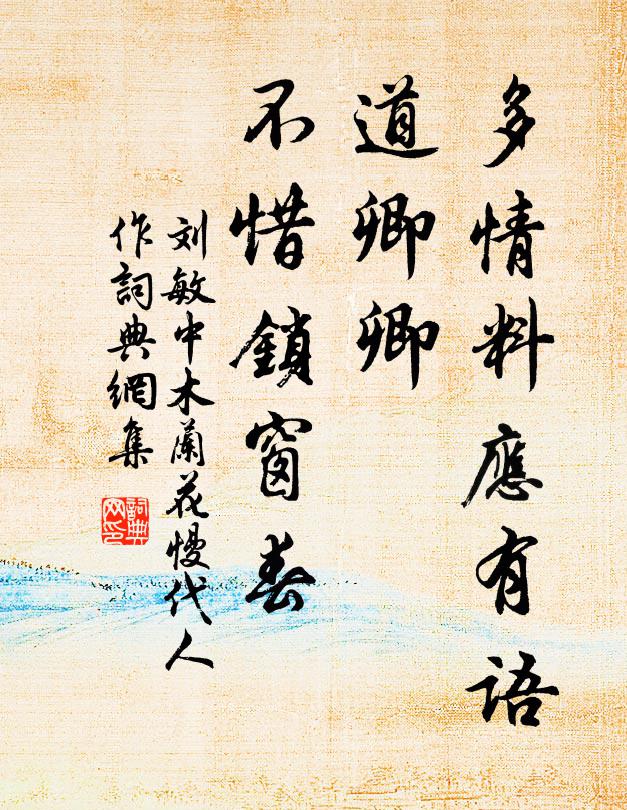 多情料應有語
道卿卿
不惜鎖窗春
刘敏中木蘭花慢代人
作詞典網集
詞典
网印